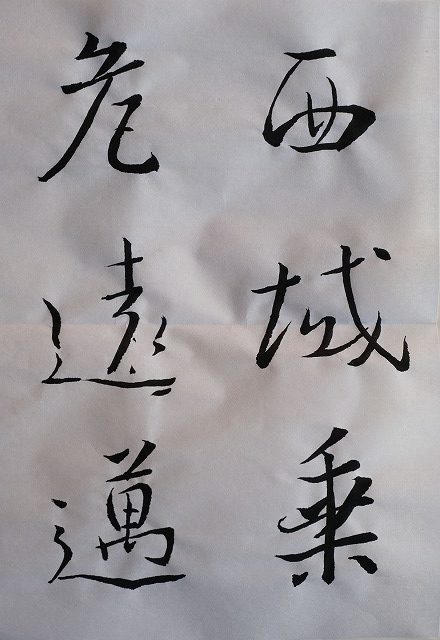 西域乗
危遠邁